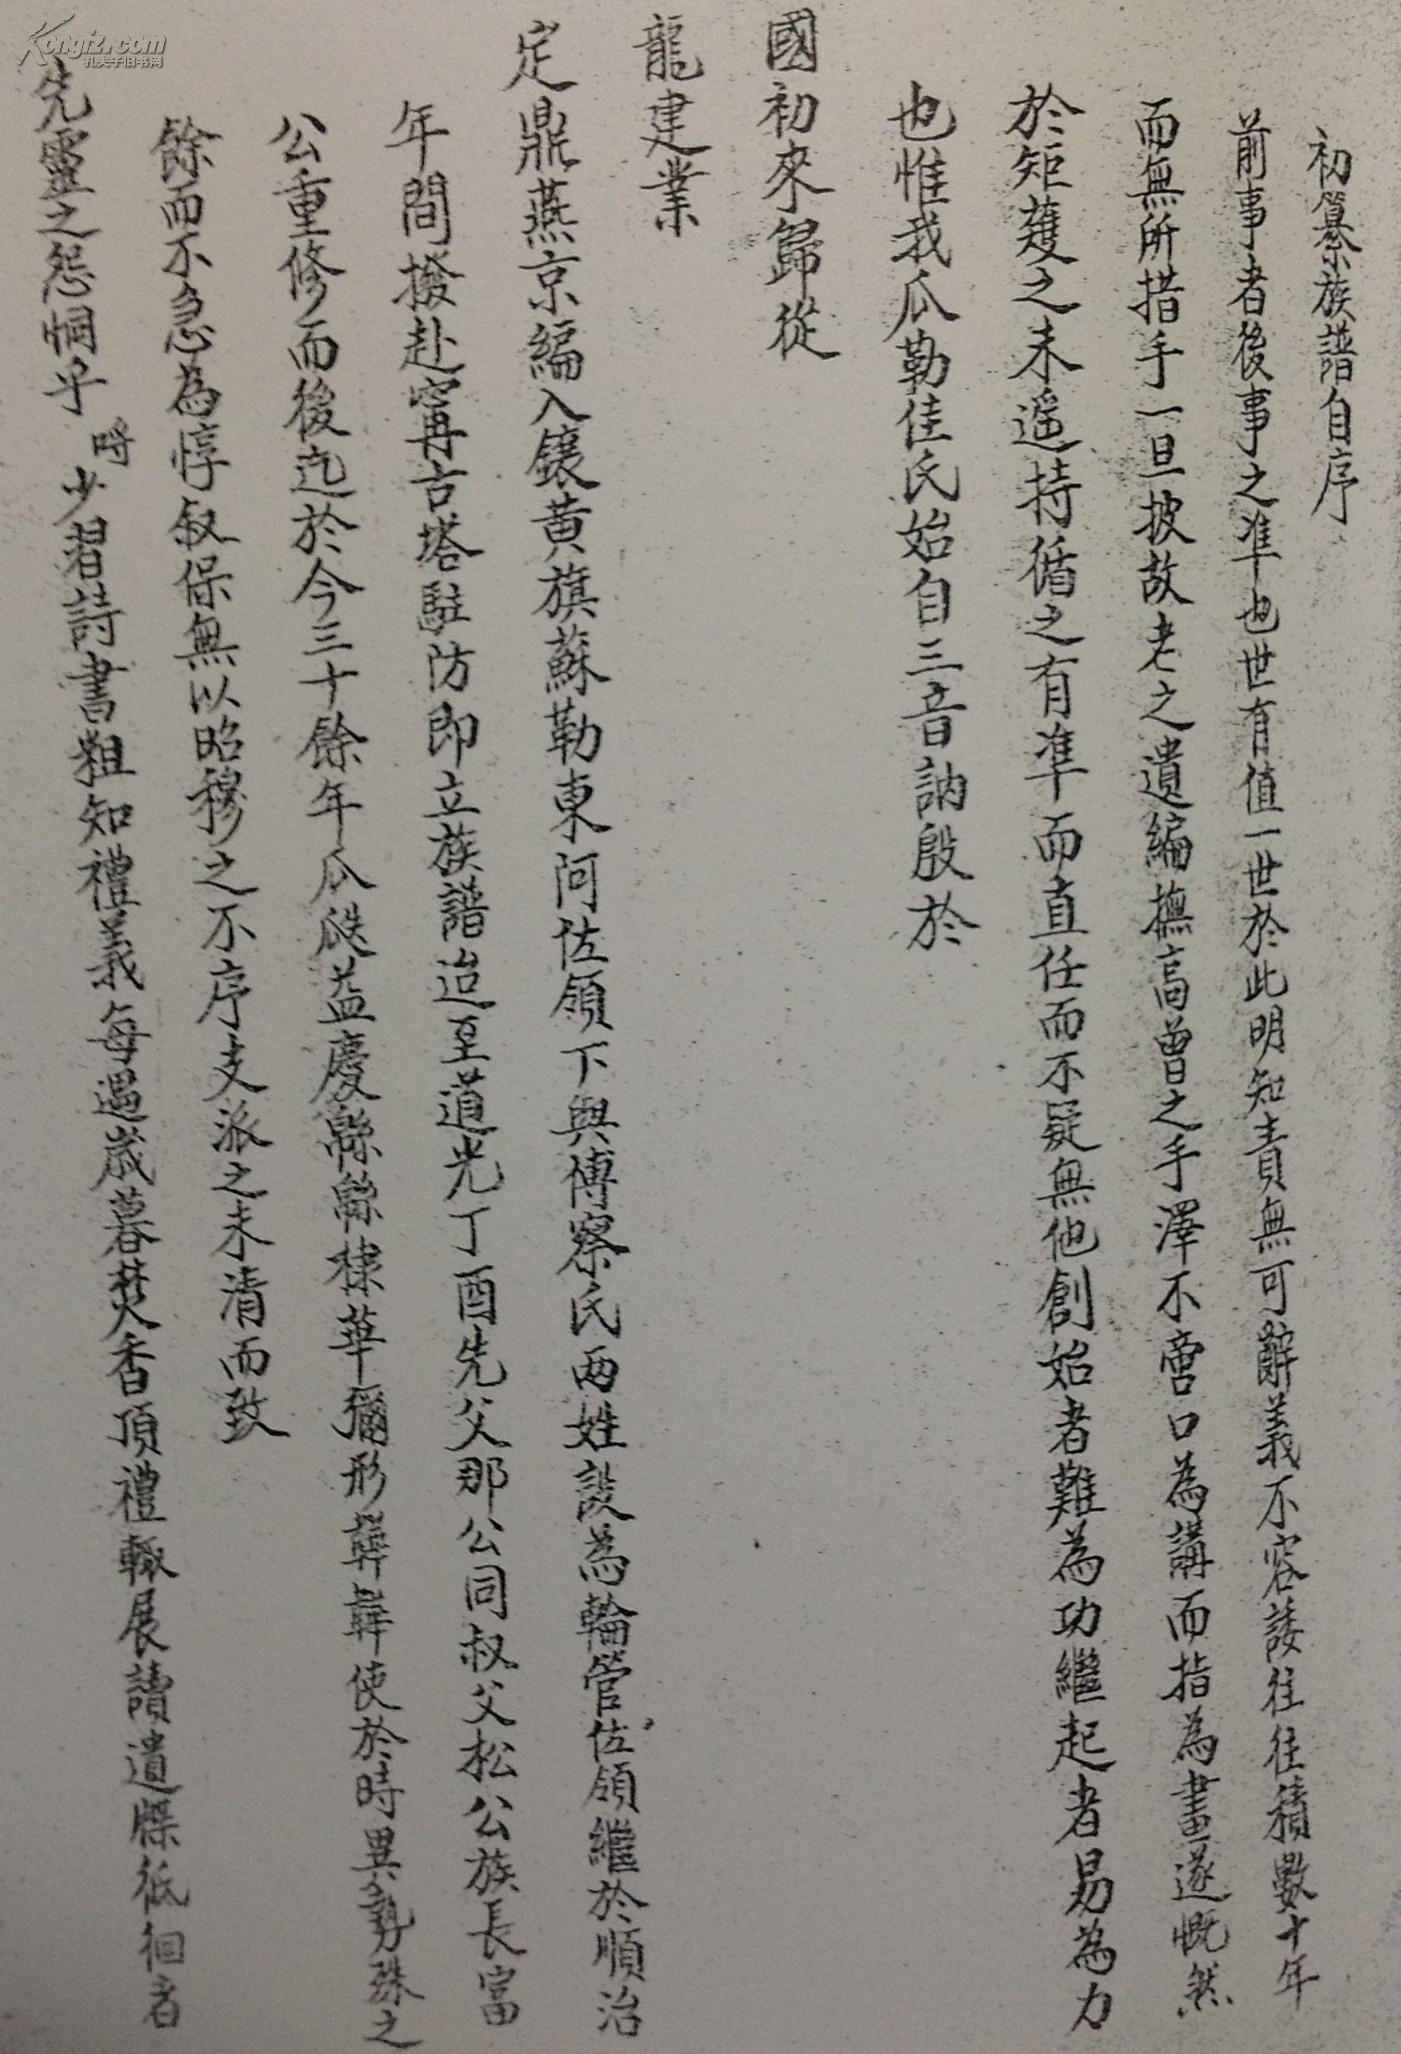 初纂族譜自序
前事者後事之準也世有值一世於此明知責無可辭義不容諉往往積數十年
而無所措手一旦披故老之遺編撫高曾之手澤不啻口為講而指為畫遂慨然
於矩蒦之未遥持循之有準而直任而不疑無他創始者難為功繼起者易為力
也惟我瓜勒佳氏始自三音訥殷於
國初來歸從
龍建業
定鼎燕京編入鑲黃旗蘇勒東阿佐領下與博察氏两姓設為輪管佐領繼於順治
年間撥赴寗古塔駐防即立族譜迨至道光丁酉先父那公同叔父松公族長富
公重修而後迄於今三十餘年瓜瓞益慶緜緜棣華彌形韡韡使於時異勢殊之
餘而不急為惇叙保無以昭穆之不序支派之未清而致
先靈之怨恫乎
時少習詩書粗知禮義每遇歲暮焚香頂禮輒展讀遺牒低徊者
Kongfz.com
孔夫子旧书网